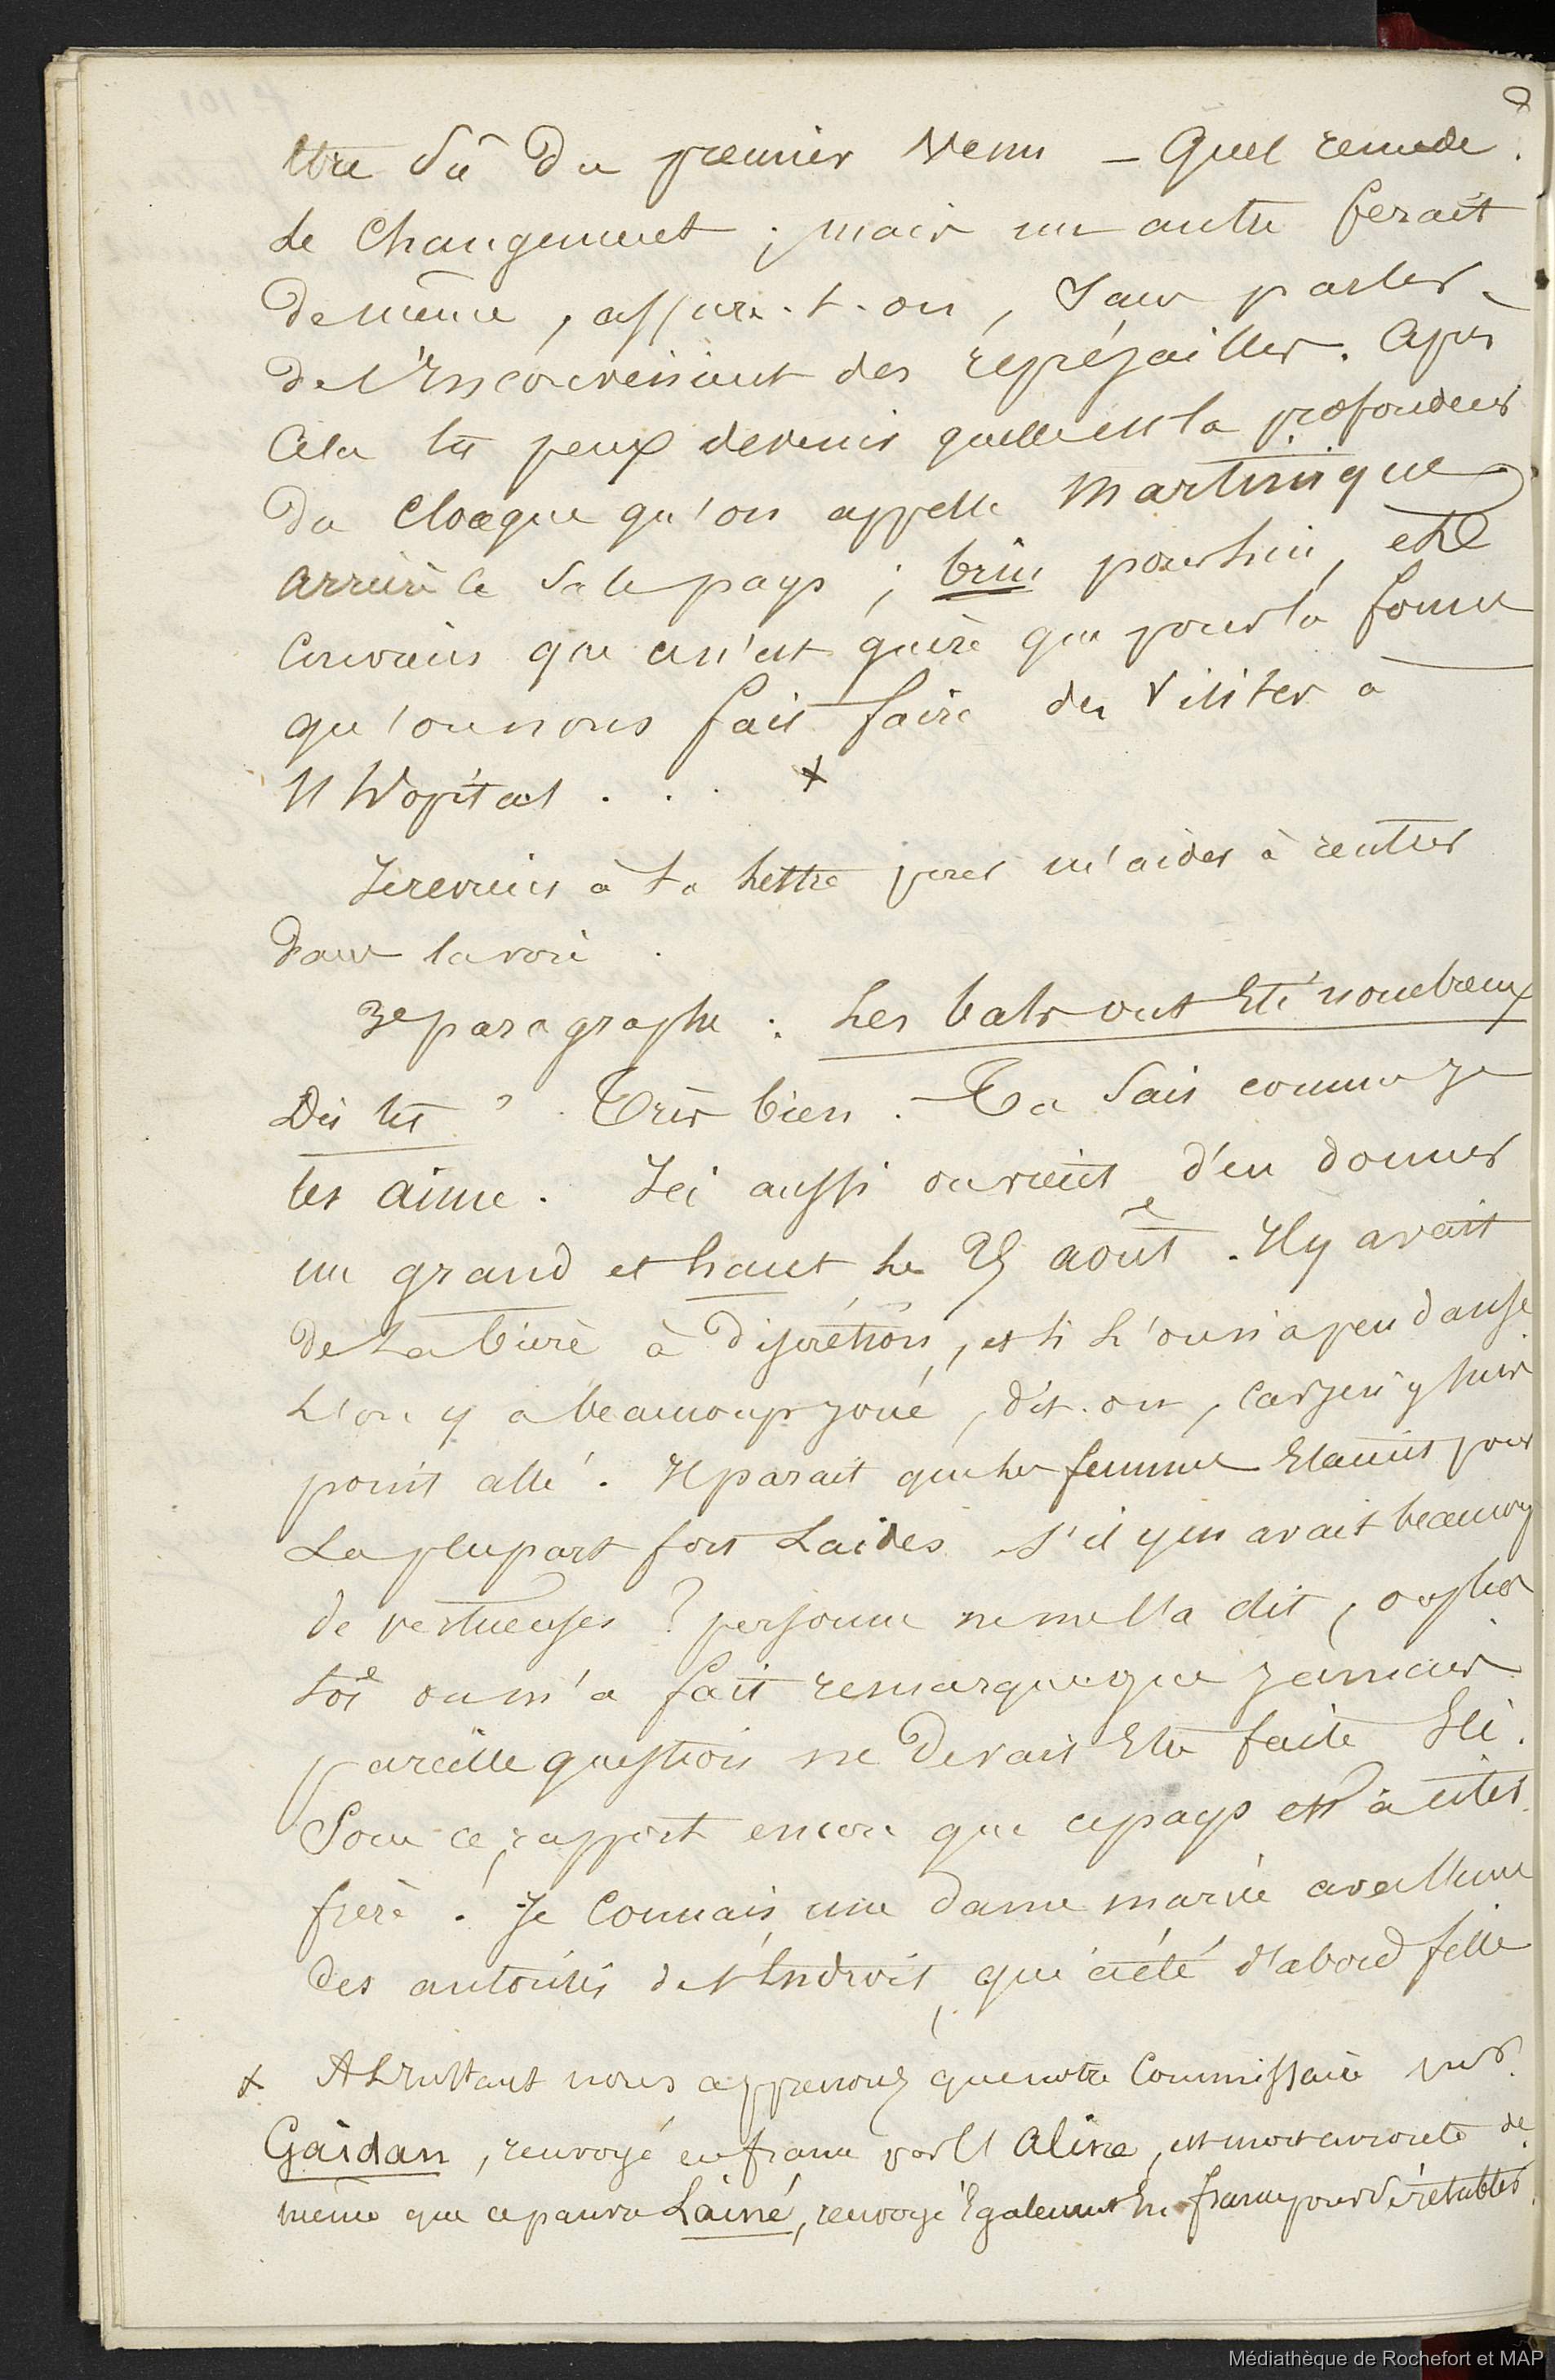 être Sû du premier Venu – Quel remede.
Le Changement ; mais un autre ferait
de même, assure-t-on, Sans parler
de l'Inconvénient des représailles. Après
Cela tu peux deviner quelle est la profondeur
du Cloaque qu'on appelle Martinique
Arrière le Sale pays ; brûle pourtant, et
Convains que ce n'est guère que pour la forme
qu'on nous fait faire des Visites à
l'hôpital . . . x
Je reviens à ta Lettre pour m'aider à rentrer
dans la voie.
3e paragraphe : Les bals ont Eté nombreux
Dis tu ? Très bien. Tu Sais comme je
les aime. Ici aussi on vient d'en donner
un grand et haut Le 25 août. Il y avait
de La bière à discrétion, et si L'on n'a peu dansé
L'on y a beaucoup joué, dit-on, car je n'y suis
point allé. Il parait que Les femmes Etaient pour
La plupart fort Laides S'il y en avait beaucoup
de vertueuses ? personne ne me l'a dit, au plus
tôt on m'a fait remarquer que jamais
pareille question ne devait Etre faite Ici.
Sous ce rapport encore que ce pays est à citer
frère. Je Connais une dame mariée avec l'une
des autorités de l'Endroit, qui a été d'abord fille
x A L'instant nous apprenons que notre Commissaire mr.
Gaidan, renvoyé en france par l'Aline, est mort en route de
même que ce pauvre Lainé, renvoyé Egalement En france pour S'y rétablir.
Médiathèque de Rochefort et MAP